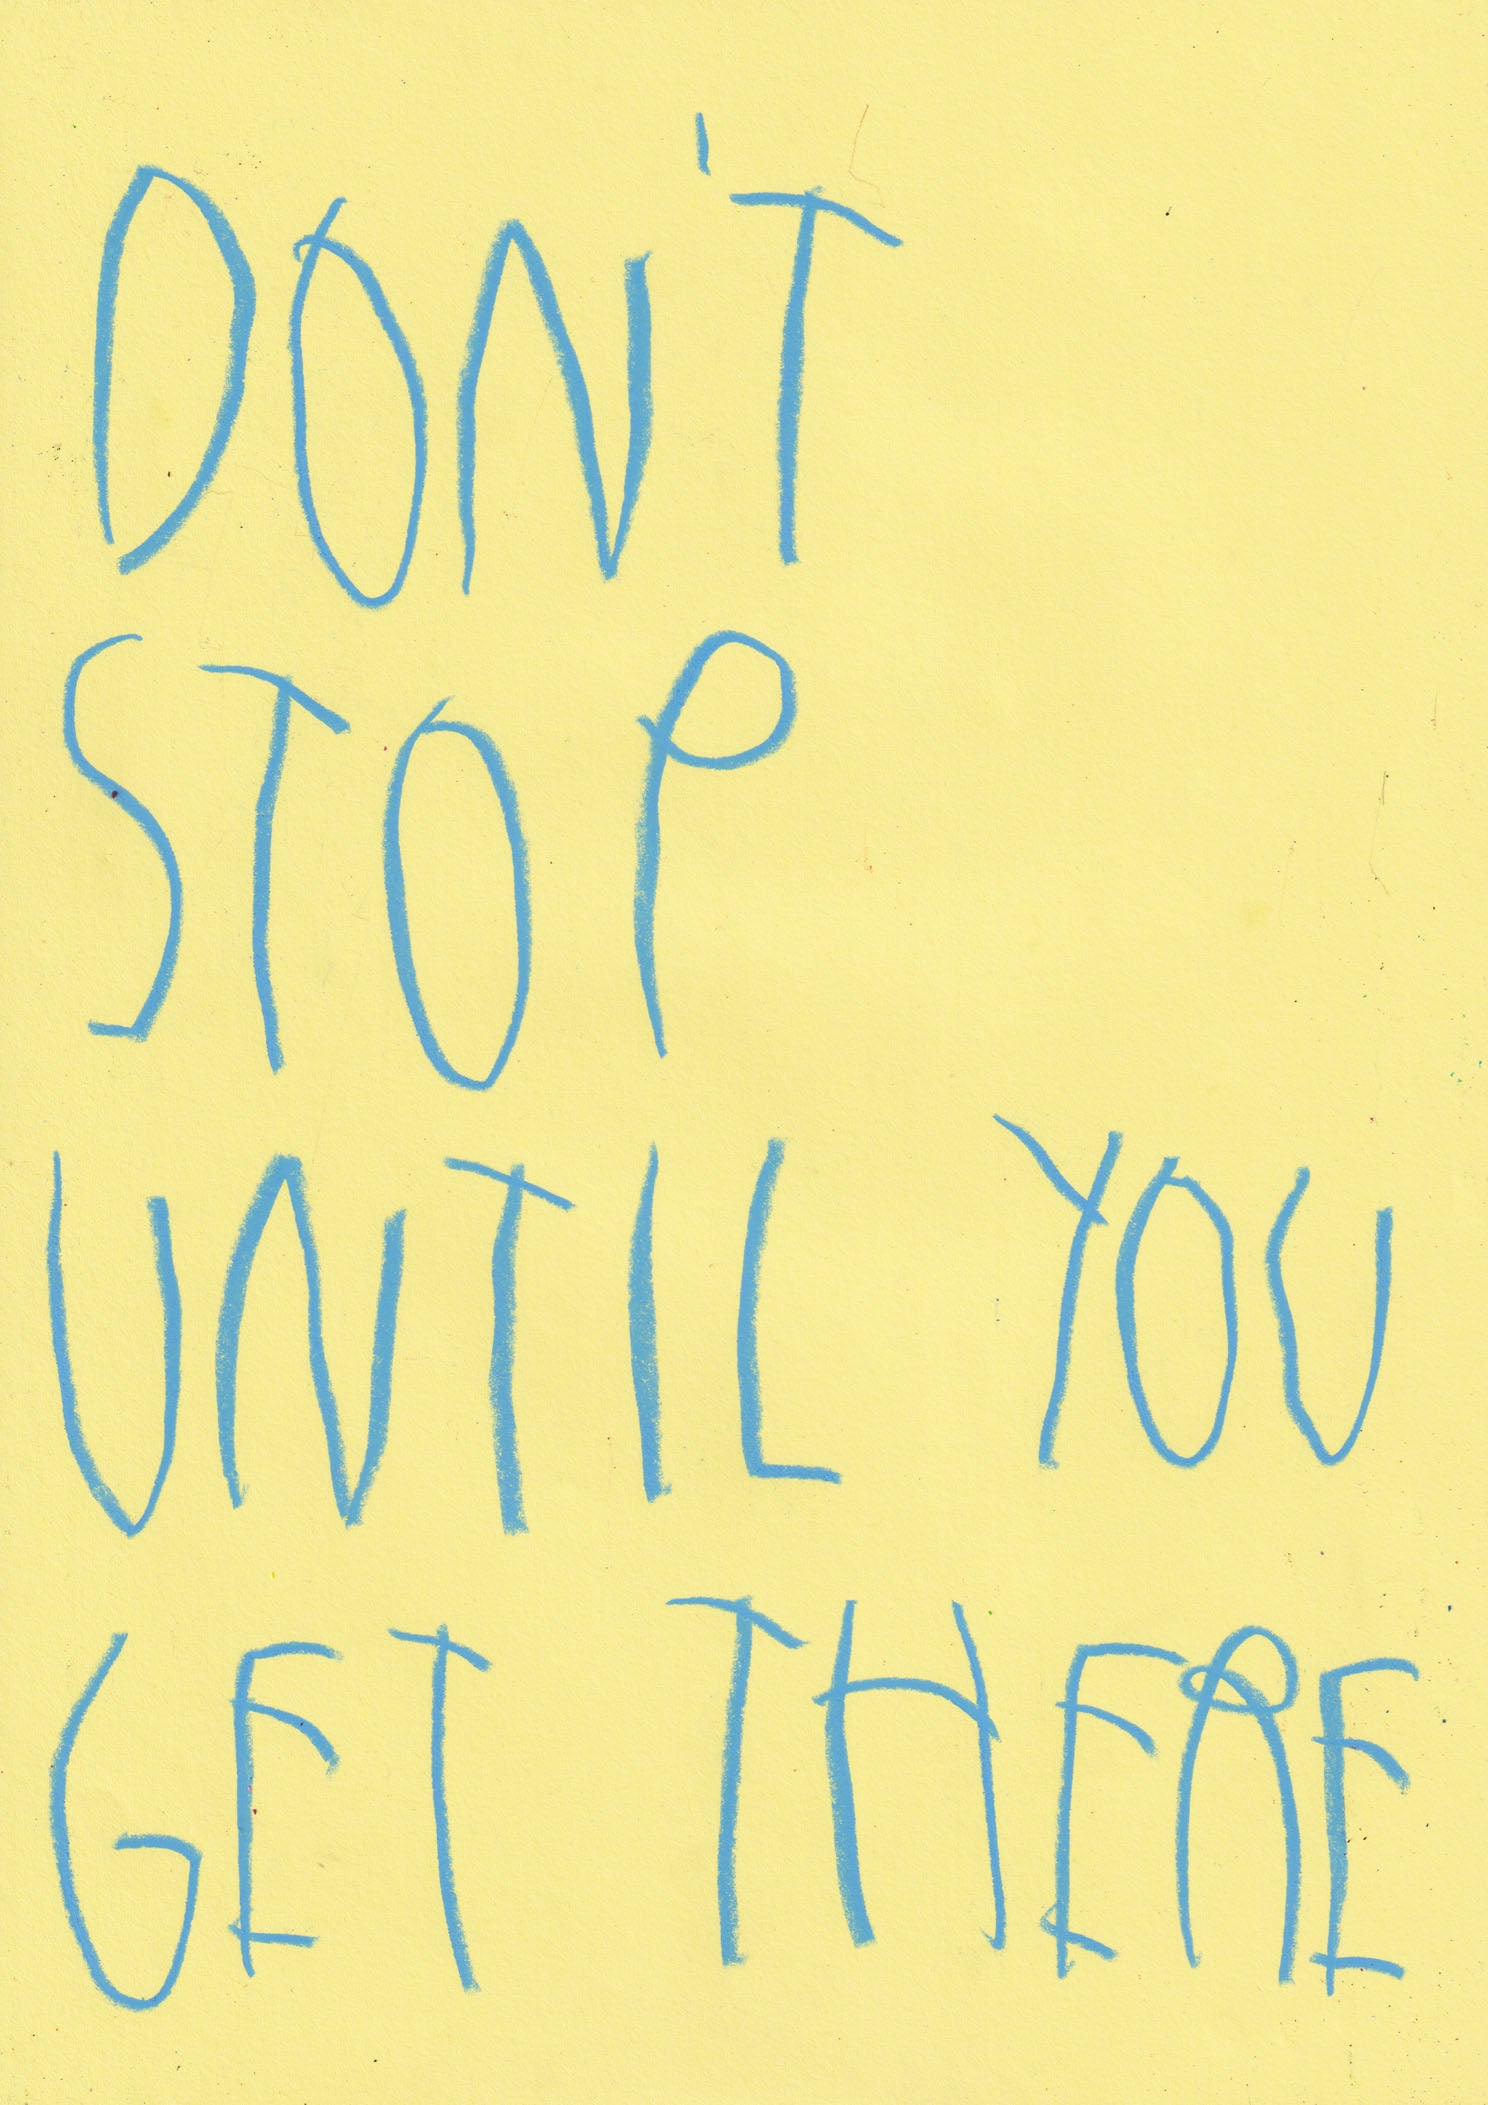 DON'T
STOP
UNTIL YOU
GET THERE